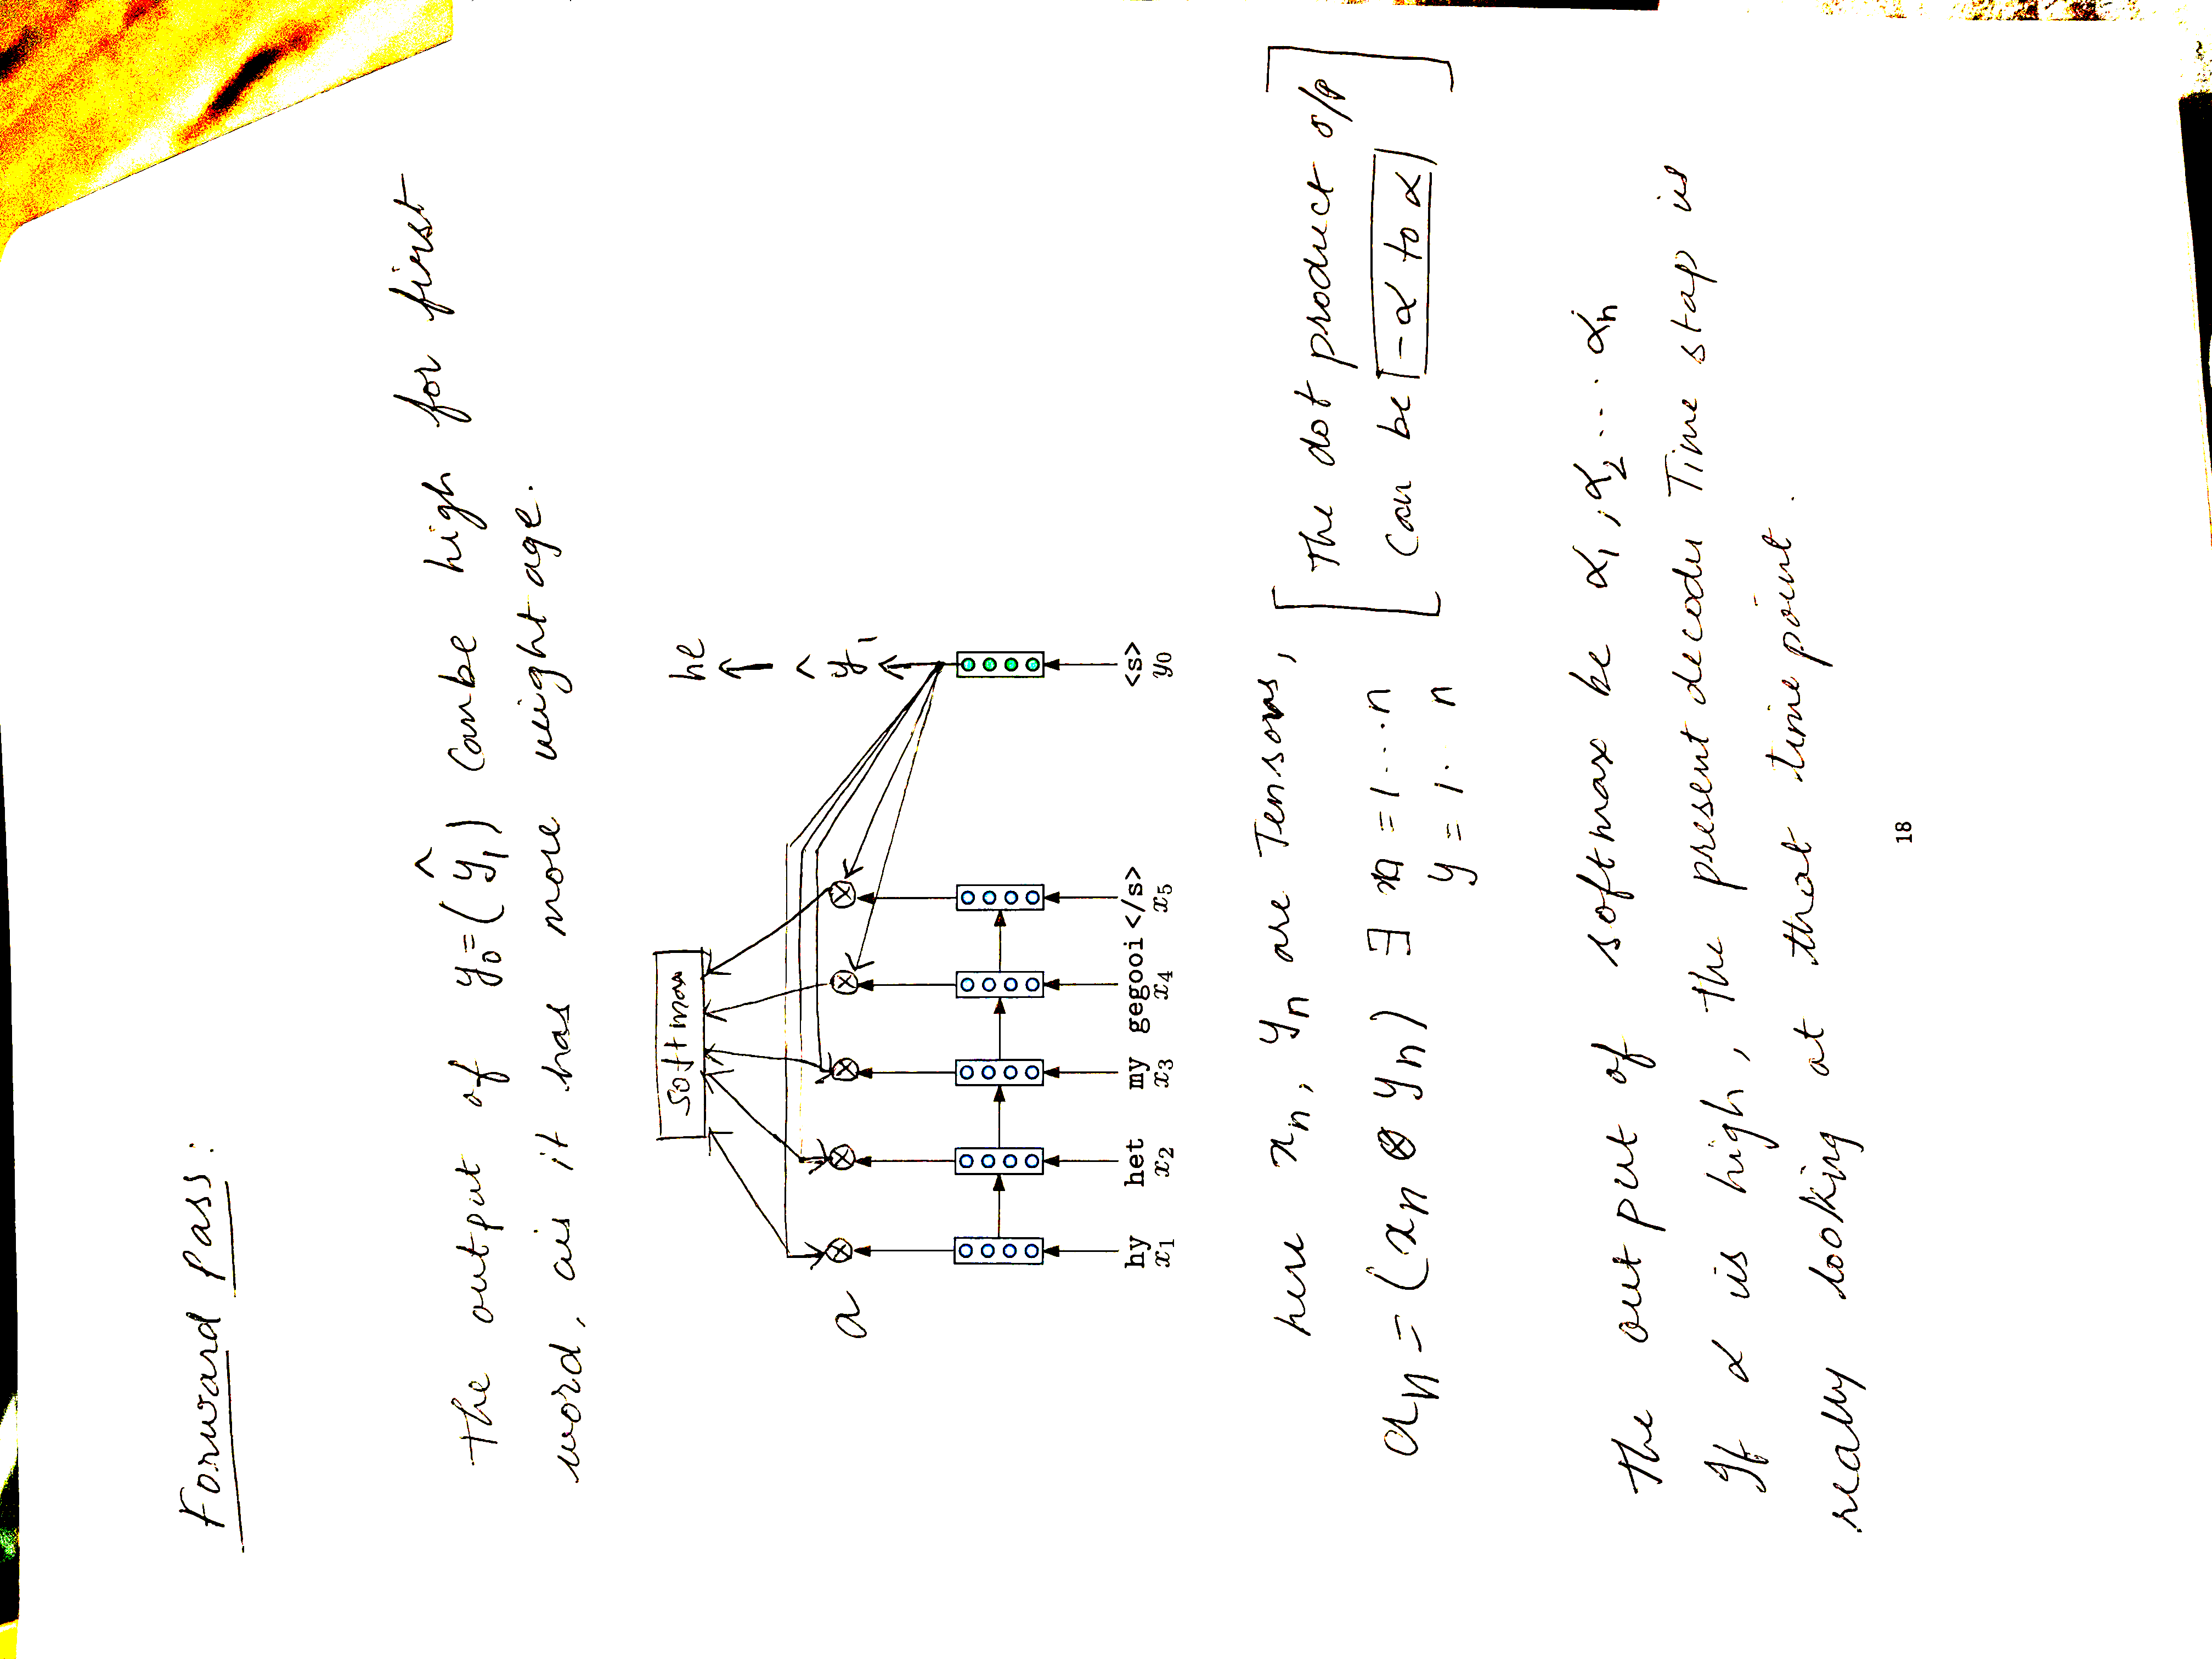 Forward Pass:
The output of y0=(ŷ1) can be high for first
word, as it has more weightage.
softmax
he
ŷ1
a
hy het my gegooi </s> <s>
x1 x2 x3 x4 x5 y0
here xn, yn are Tensors, [The dot product o/p
can be -α to α]
an = (xn ⊗ yn) ∃ x = 1....n
y = 1.. n
The out put of softmax be α1, α2 ... αn
If α is high, the present decoder Time stap is
really looking at that time point.
18